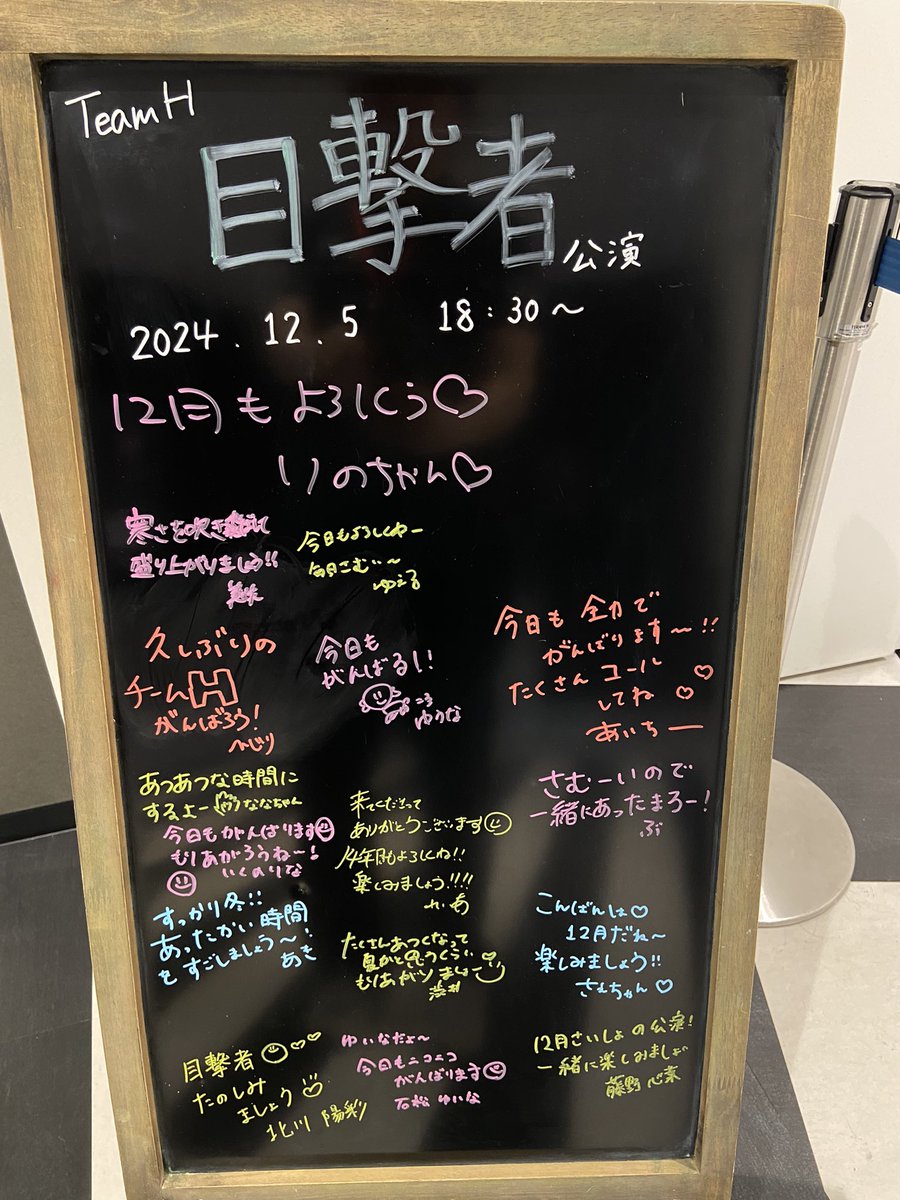 Team H
目撃者 公演
2024.12.5 18:30～
12月もよろしくぅ♡
りのちゃん♡
寒さを吹き
盛り上がりましょう!!
今日もよろしくゆー
毎日さむい～
ゆえる
久しぶりの
チームH
がんばろう!
へじり
今日も
がんばるし!
ゆうな
今日も 全力で
がんばります～!!
たくさん コール
してね ♡♡
あいちー
あつあつな時間に
するよー ななちゃん
今日もがんばります
もりあがろうね～!
いくのりな
来てくださって
ありがとうございます
14年目もよろしくね!!
楽しみましょう!!!!
さむーいので
一緒にあったまろー!
ぶ
すっかり冬!!
あったかい時間
をすごしましょう～!
あき
たくさんあつくなって
夏かと思うくらい
もりあがりましょ
こんばんは♡
12月だね～
楽しみましょう!!
さえちゃん♡
目撃者 ♡♡
たのしみ
ましょう
北川 陽彩
ゆいなだよ～
今日もニコニコ
がんばります
石松 ゆいな
12月さいしょの公演!
一緒に楽しみましょ
藤野 心葉